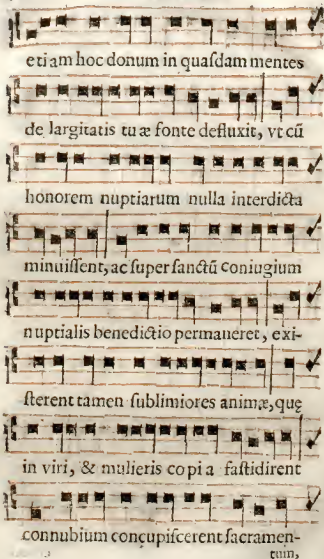 etiam hoc donum in quaſdam mentes
de largitatis tuæ fonte defluxit, vt cũ
honorem nuptiarum nulla interdicta
minuiſſent, ac ſuper ſanctũ coniugium
nuptialis benedictio permaneret, exi-
ſterent tamen ſublimiores animæ, quę
in viri, & mulieris copia faſtidirent
connubium concupiſcerent ſacramen-
tum,